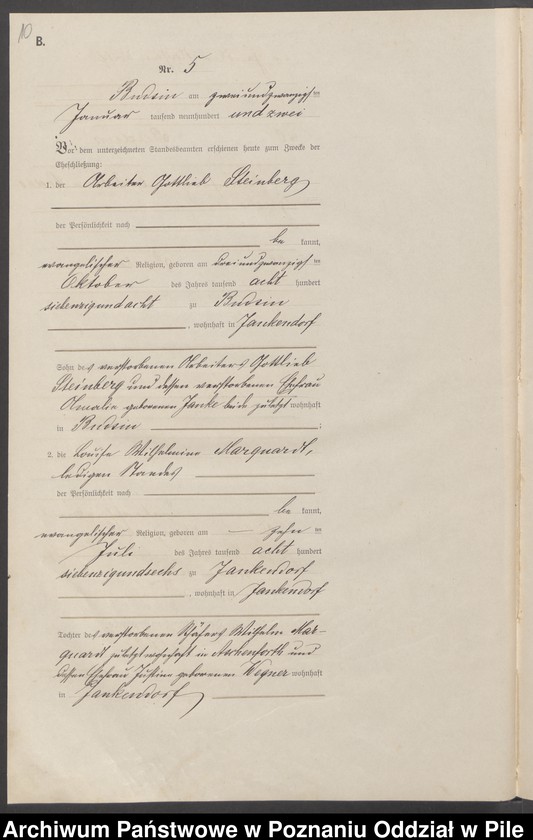 10
B.
Nr. 5
Budsin am zweiundzwanzigsten
Januar tausend neunhundert und zwei
Vor dem unterzeichneten Standesbeamten erschienen heute zum Zwecke der
Eheschließung:
1. der Arbeiter Gottlieb Steinberg
der Persönlichkeit nach
be kannt,
evangelischer Religion, geboren am dreiundzwanzigsten
Oktober des Jahres tausend acht hundert
siebenzigundacht zu Budsin
, wohnhaft in Jankendorf
Sohn des verstorbenen Arbeiters Gottlieb
Steinberg und dessen verstorbenen Ehefrau
Amalie geborenen Janke beide zuletzt wohnhaft
in Budsin ;
2. die Louise Wilhelmine Marquardt,
ledigen Standes
der Persönlichkeit nach
be kannt,
evangelischer Religion, geboren am zehn ten
Juli des Jahres tausend acht hundert
siebenzigundsechs zu Jankendorf
, wohnhaft in Jankendorf
Tochter des verstorbenen Schäfers Wilhelm Mar-
quardt zuletzt wohnhaft in und
dessen Ehefrau Justine geborenen Wegner wohnhaft
in Jankendorf
Archiwum Państwowe w Poznaniu Oddział w Pile